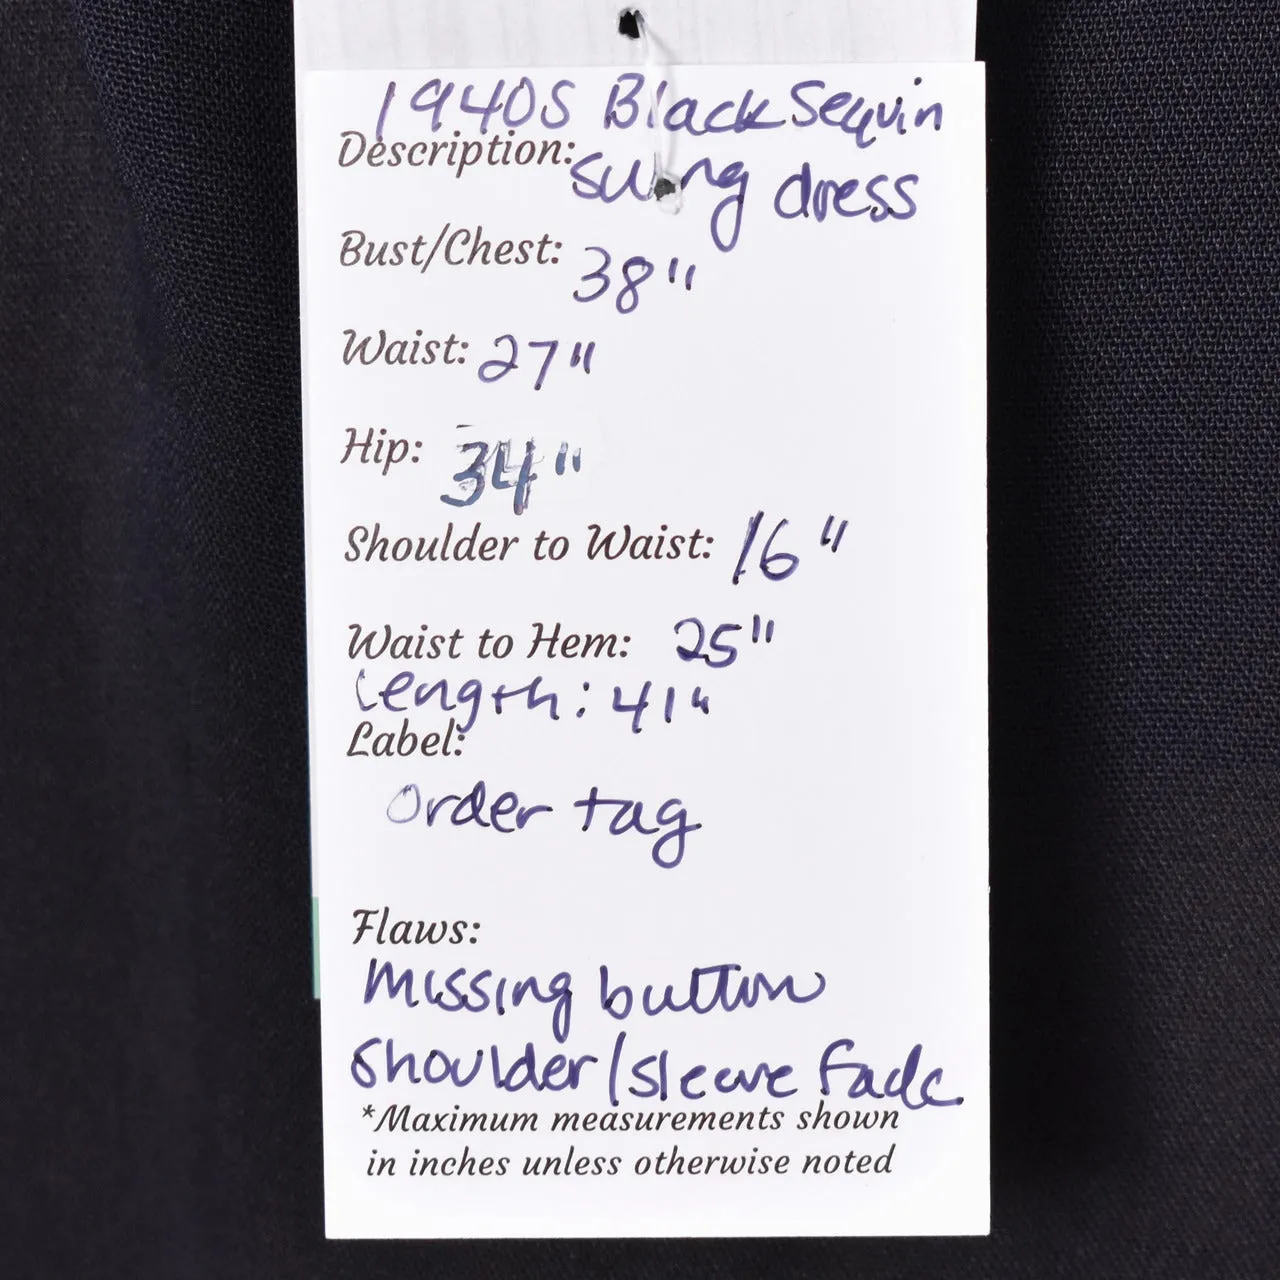 1940s Black Sequin
Description: swing dress
Bust/Chest: 38"
Waist: 27"
Hip: 34"
Shoulder to Waist: 16"
Waist to Hem: 25"
Length: 41"
Label:
Order tag
Flaws:
Missing button
Shoulder/sleeve fade
*Maximum measurements shown
in inches unless otherwise noted